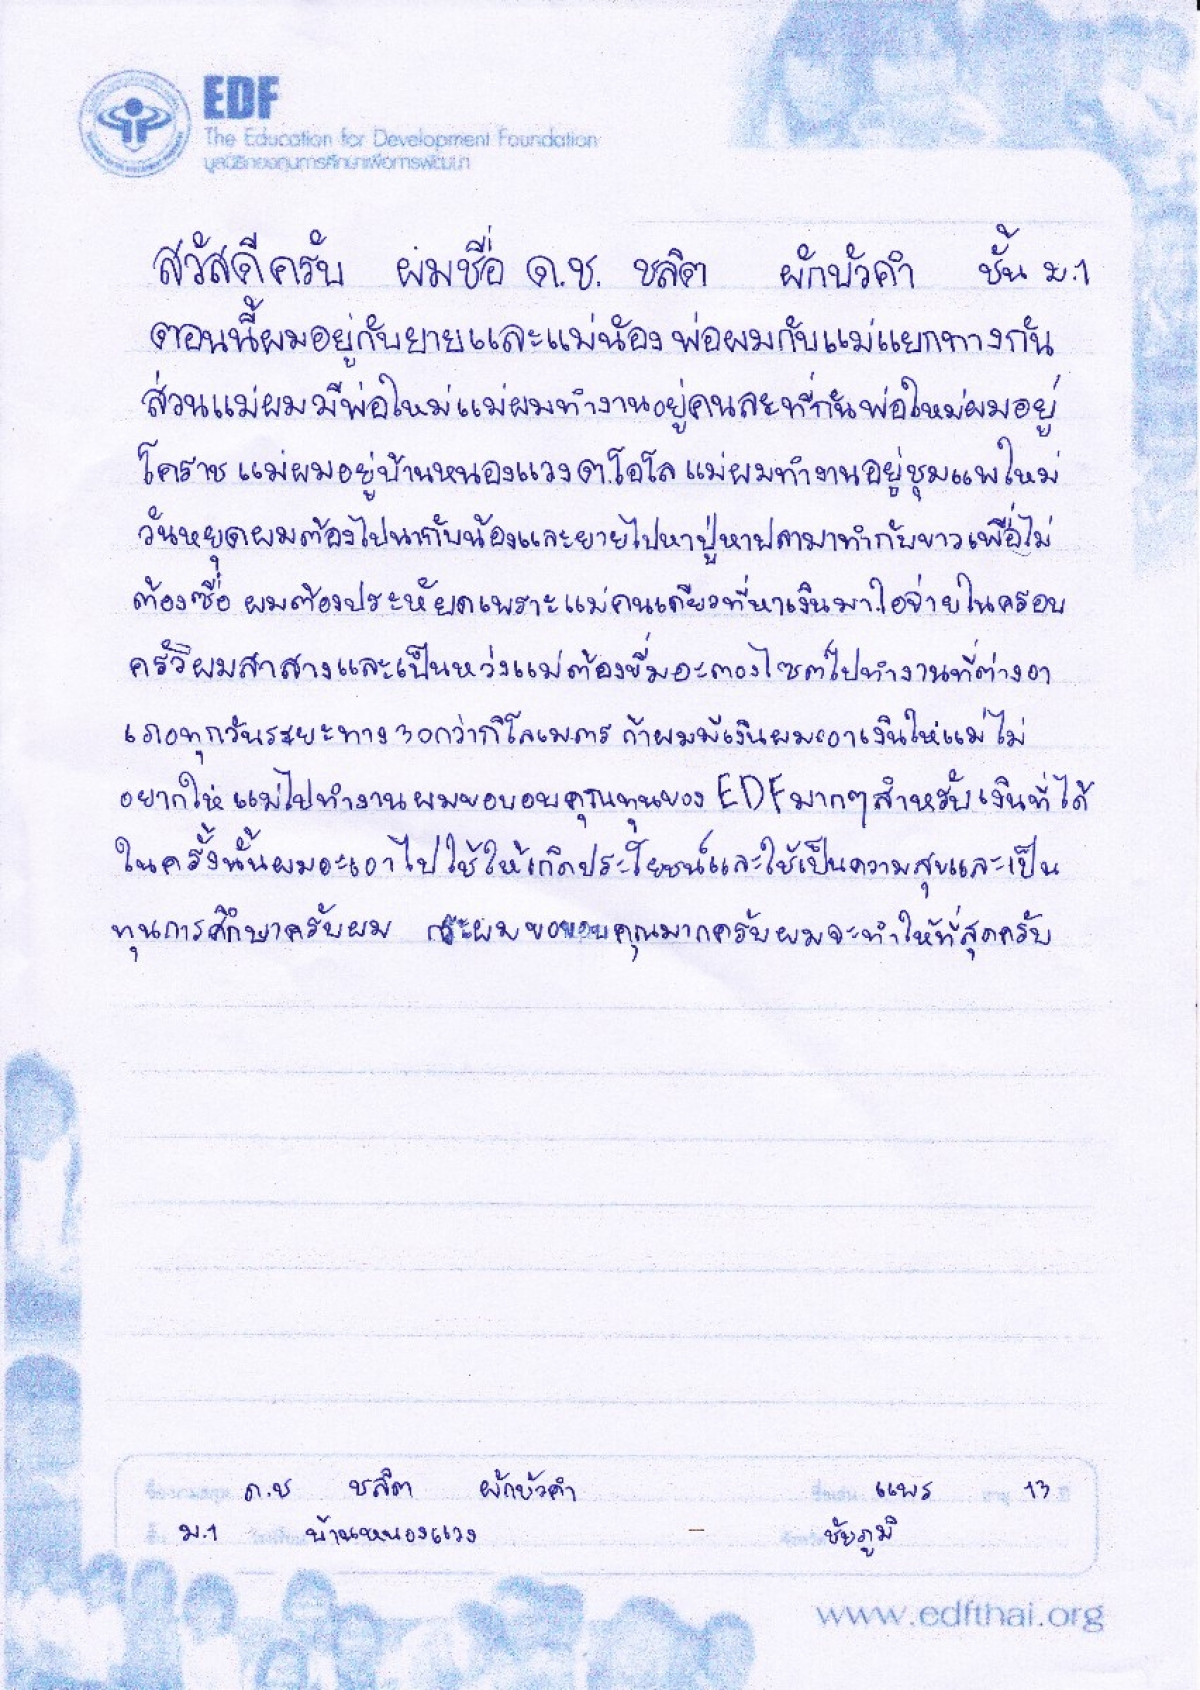 EDF
The Education for Development Foundation
มูลนิธิกองทุนการศึกษาเพื่อการพัฒนา
สวัสดีครับ ผมชื่อ ด.ช. ชลิต ผักบัวคำ ชั้น ม.1
ตอนนี้ผมอยู่กับยายและแม่น้อง พ่อผมกับแม่แยกทางกัน
ส่วนแม่ผมมีพ่อใหม่แม่ผมทำงานอยู่คนละที่กันพ่อใหม่ผมอยู่
โคราช แม่ผมอยู่บ้านหนองแวง ต.โอโล แม่ผมทำงานอยู่ชุมแพใหม่
วันหยุดผมต้องไปนากับน้องและยายไปหาปูหาปลามาทำกับขาวเพื่อไม่
ต้องซื้อ ผมต้องประหยัดเพราะแม่คนเดียวที่หาเงินมาใอจ่ายในครอบ
ครัวผมสาสางและเป็นหว่งแม่ต้องขี่มอะตองไซต์ไปทำงานที่ต่างอา
เภอทุกวันระยะทาง 30กว่ากิโลเมตร ถ้าผมมีเงินผมเอาเงินให้แม่ไม่
อยากให้ แม่ไปทำงาน ผมขอบอบคุณทุนของ EDF มากๆสำหรับเงินที่ได้
ในครั้งนั้นผมอะเอาไปใช้ให้เกิดประโยชน์และใช้เป็นความสุขและเป็น
ทุนการศึกษาครับผม กระผมขอขอบคุณมากครับผมจะทำให้ที่สุดครับ
ด.ช ชลิต ผักบัวคำ แพร 13 ปี
ม.1 บ้านหนองแวง - ชัยภูมิ
www.edfthai.org